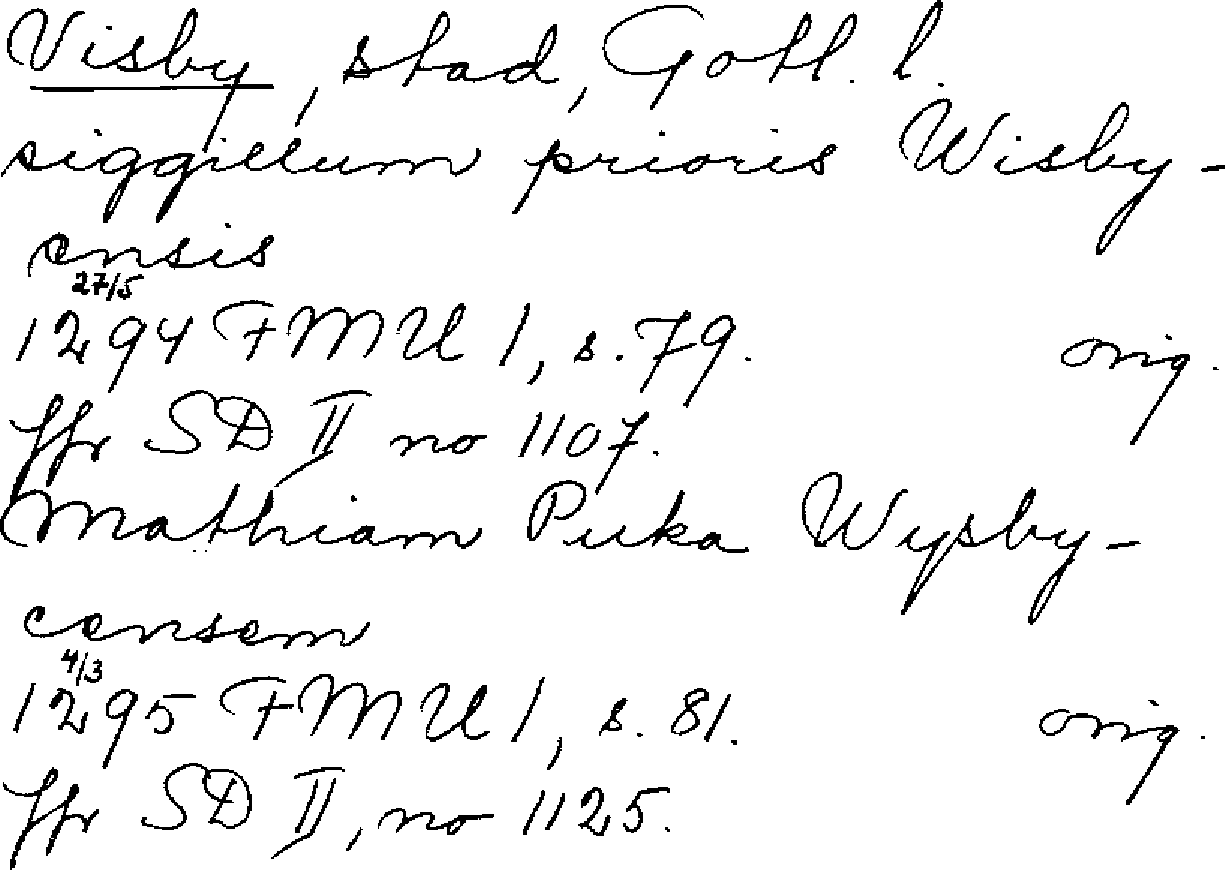 Visby, stad, Gotl. l.
siggillum prioris Wisby-
ensis
27/5
1294 FMU 1, s. 79. orig.
Jfr SD II no 1107.
Mathiam Puka Wysby-
censem
4/3
1295 FMU 1, s. 81. orig.
Jfr SD II, no 1125.